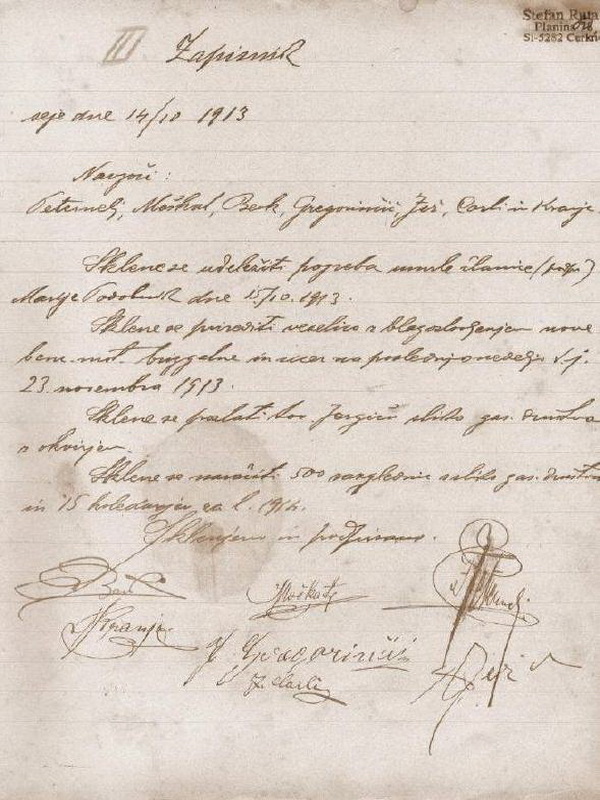 Stefan Ruta
Planina
SI-5282 Cerkno
III Zapisnik
seje dne 14/10 1913
Navzoči:
Peternelj, Moškat, Berk, Gregorinčič, Jež, Carli in Kranjc
Sklene se udeležiti pogreba umrle članice
Marije Podobnik dne 15/10. 1913.
Sklene se prirediti veselico z blagoslovljenjem nove
benc. mot. brizgalne in sicer na poslednjo nedeljo t.j.
23. novembra 1913.
Sklene se poslati sliko gas. društva
z okvirjem.
Sklene se naročiti 500 razglednic s sliko gas. društva
in 15 koledarjev za l. 1914.
Sklenjeno in podpisano.
Berk Moškat Peternelj
Kranjc
Gregorinčič Jež
Carli